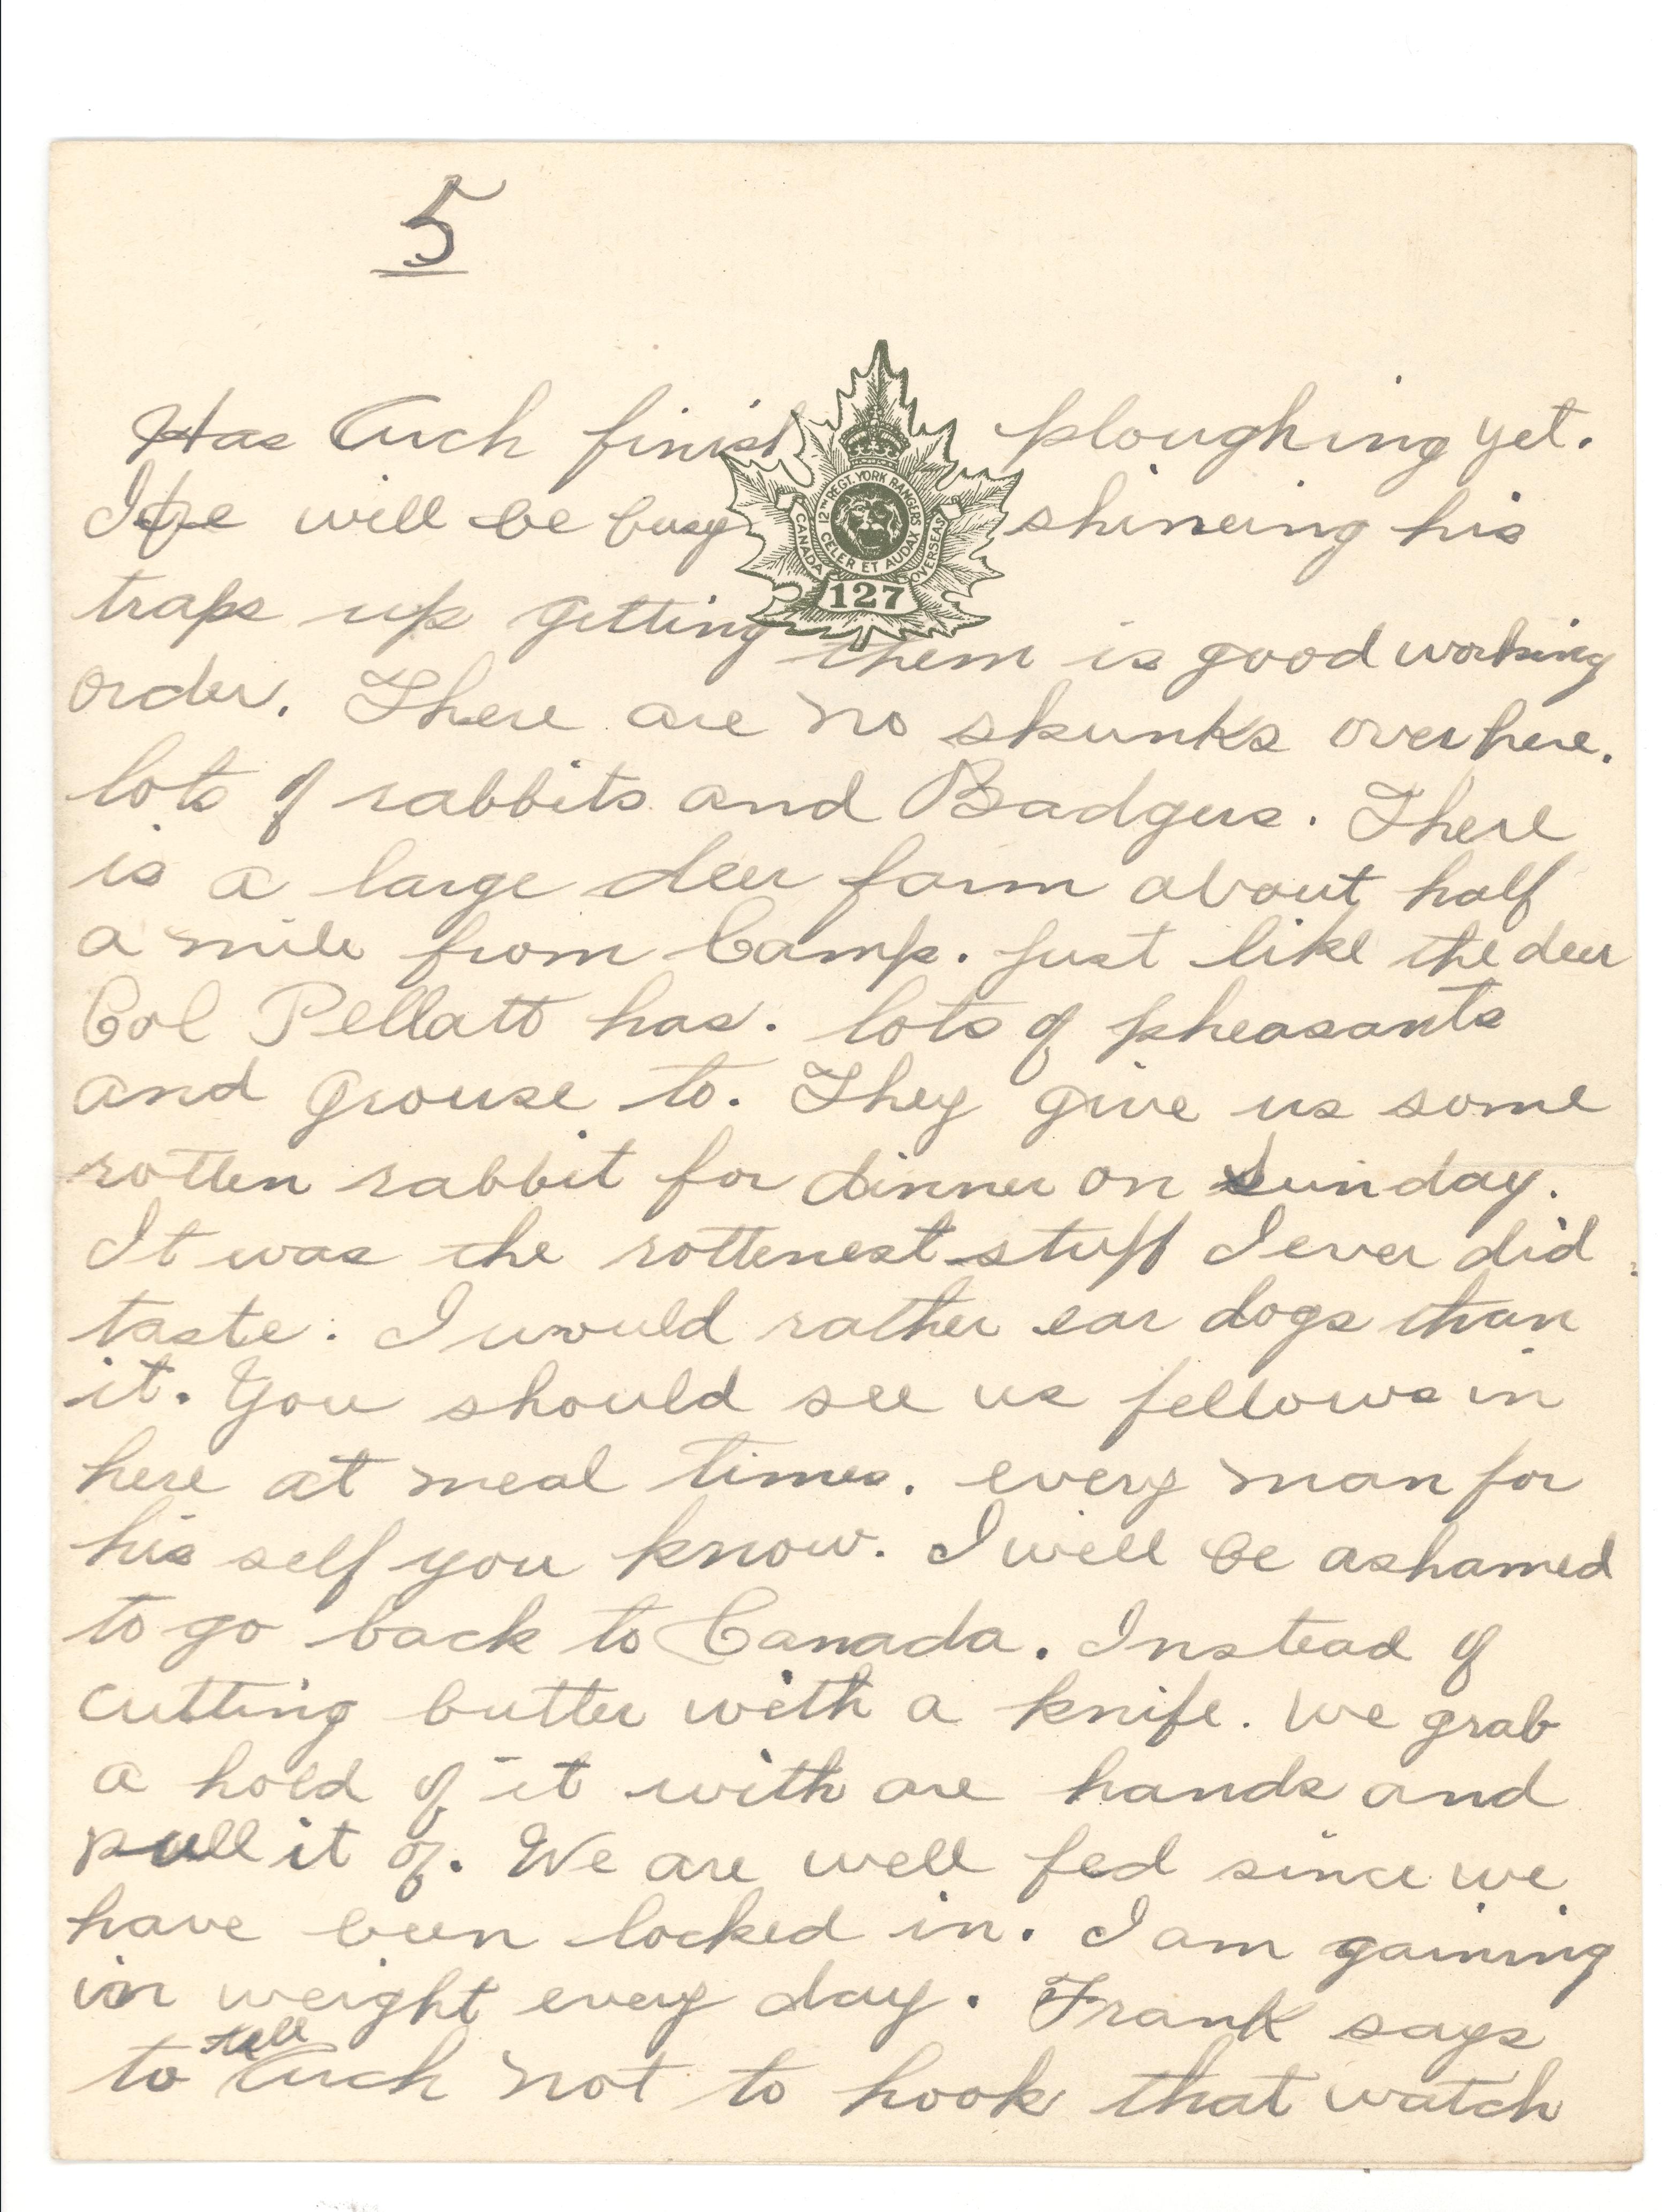 5
12TH REGT. YORK RANGERS
CELER ET AUDAX
CANADA
OVERSEAS
127
Has Arch finish ploughing yet.
He will be busy shineing his
traps up getting them is good working
order. There are no skunks over here.
lots of rabbits and Badgers. There
is a large deer farm about half
a mile from Camp. Just like the deer
Col Pellatt has. lots of pheasants
and grouse to. They give us some
rotten rabbit for dinner on Sunday.
It was the rottenest stuff I ever did
taste. I would rather ear dogs than
it. You should see us fellows in
here at meal times. every man for
his self you know. I will be ashamed
to go back to Canada. Instead of
cutting butter with a knife. We grab
a hold of it with are hands and
pull it of. We are well fed since we
have been locked in. I am gaining
in weight every day. Frank says
to tell Arch not to hook that watch